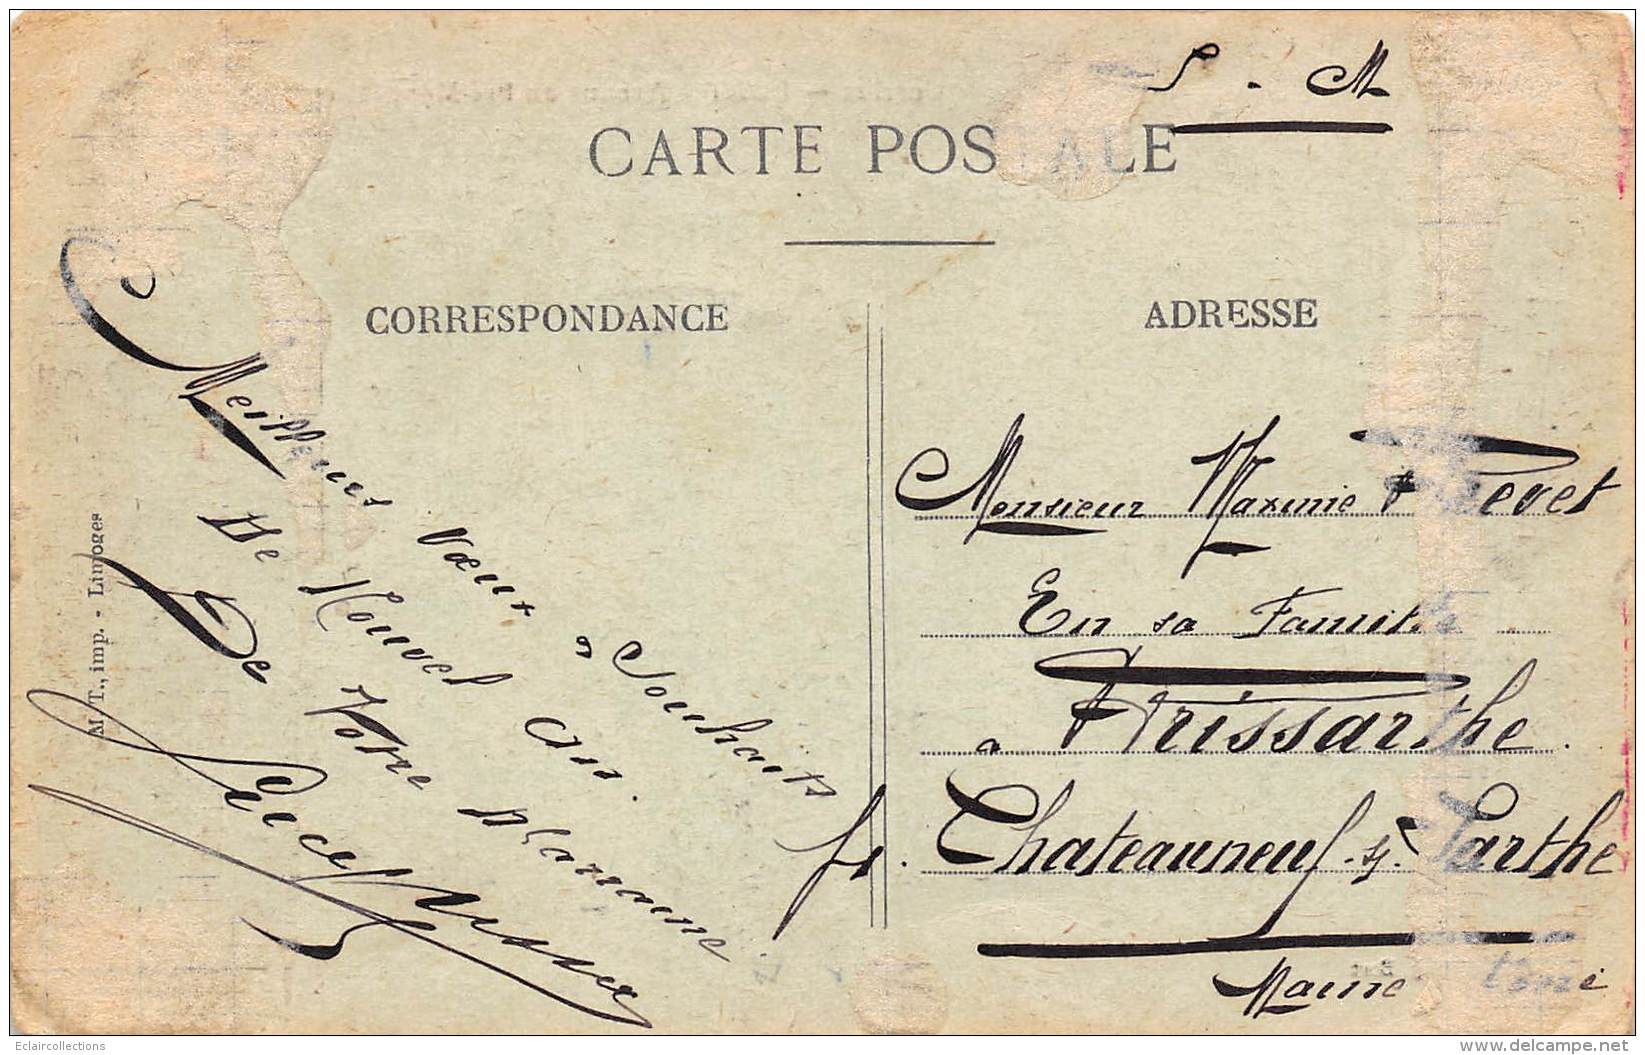 S - M
CARTE POSTALE
CORRESPONDANCE
ADRESSE
Meilleurs Vœux & Souhaits
De Nouvel An.
De Votre
M T., imp. - Limoges
Monsieur Maxime
En sa Famille
a Brissarthe
pr. Chateauneuf s/ Sarthe
Maine Loire
Eclaircollections
www.delcampe.net